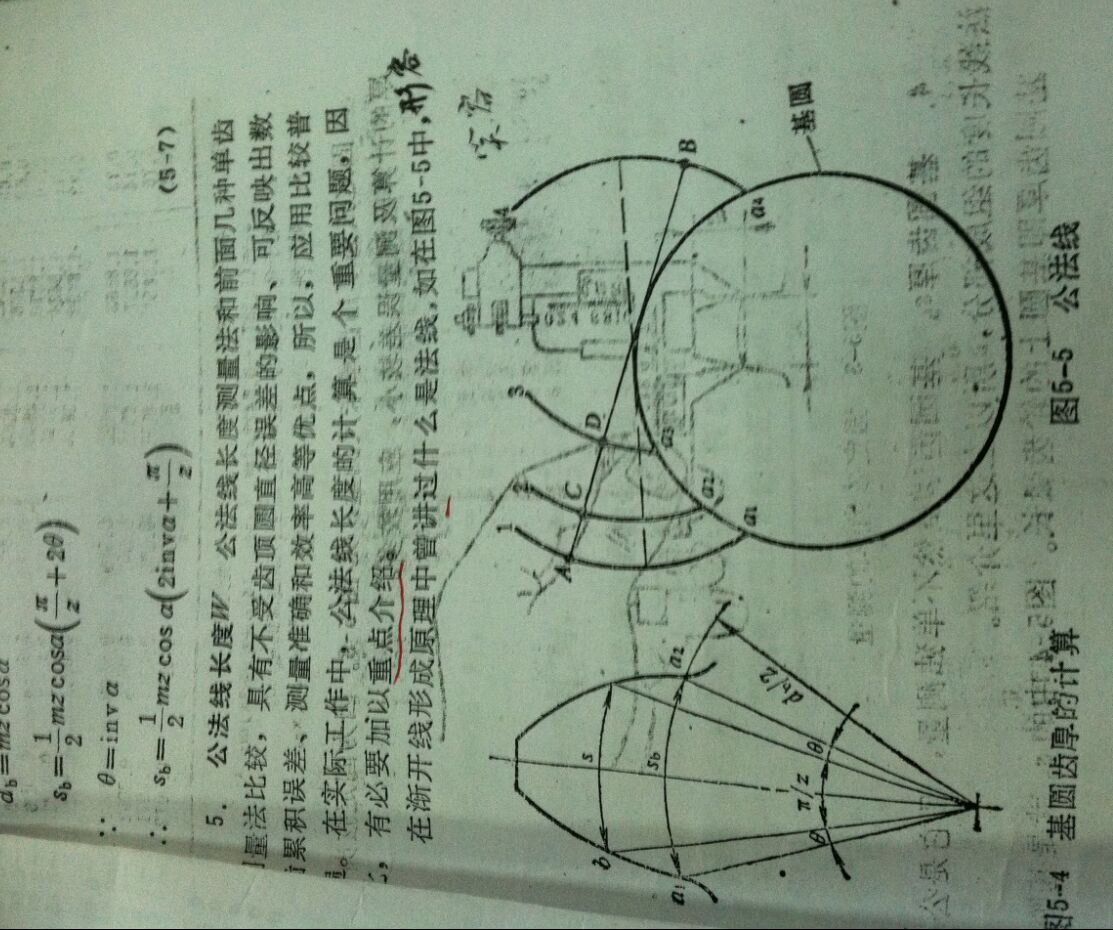 d_b=mz cosα
s_b=1/2 mz cosα(π/z+2θ)
∵ θ=invα
∴ s_b=1/2 mz cosα(2invα+π/z) (5-7)
5. 公法线长度W 公法线长度测量法和前面几种单齿
量法比较，具有不受齿顶圆直径误差的影响、可反映出数
累积误差、测量准确和效率高等优点，所以，应用比较普
。在实际工作中，公法线长度的计算是个重要问题，因
，有必要加以重点介绍。
在渐开线形成原理中曾讲过什么是法线，如在图5-5中，
形
b
s
s_b
a₁
a₂
d_b/2
θ
π/z
θ
图5-4 基圆齿厚的计算
1
2
3
4
A
C
D
B
a₁
a₂
a₃
a₄
基圆
图5-5 公法线